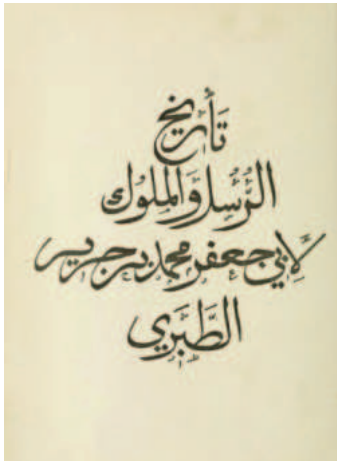 تَأريخ
الرُّسُل وَالمُلوُك
لِأبي جَعفر محمد بن جرير
الطَّبَرِي